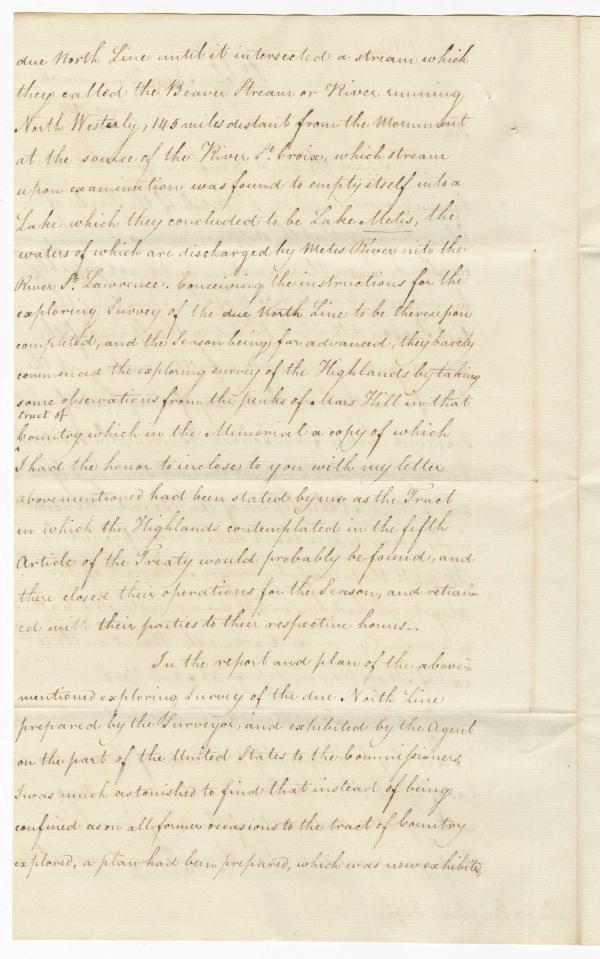 due North Line until it intersected a stream which
they called the Beaver Stream or River running
North Westerly, 145 miles distant from the Monument
at the source of the River St. Croix, which stream
upon examination was found to empty itself into a
Lake which they concluded to be Lake Metis, the
waters of which are discharged by Metis River into the
River St. Lawrence. Conceiving the instructions for the
exploring Survey of the due North Line to be thereupon
completed, and the Season being far advanced, they barely
commenced the exploring survey of the Highlands by taking
some observations from the peaks of Mars Hill in that
tract of
Country which in the Memorial a copy of which
I had the honor to inclose to you with my letter
abovementioned had been stated by me as the Tract
in which the Highlands contemplated in the fifth
Article of the Treaty would probably be found, and
there closed their operations for the Season, and return-
ed with their parties to their respective homes.
In the report and plan of the above=
mentioned exploring Survey of the due North Line
prepared by the Surveyor, and exhibited by the Agent
on the part of the United States to the Commissioners,
I was much astonished to find that instead of being
confined as on all former occasions to the tract of Country
explored, a plan had been prepared, which was now exhibited,